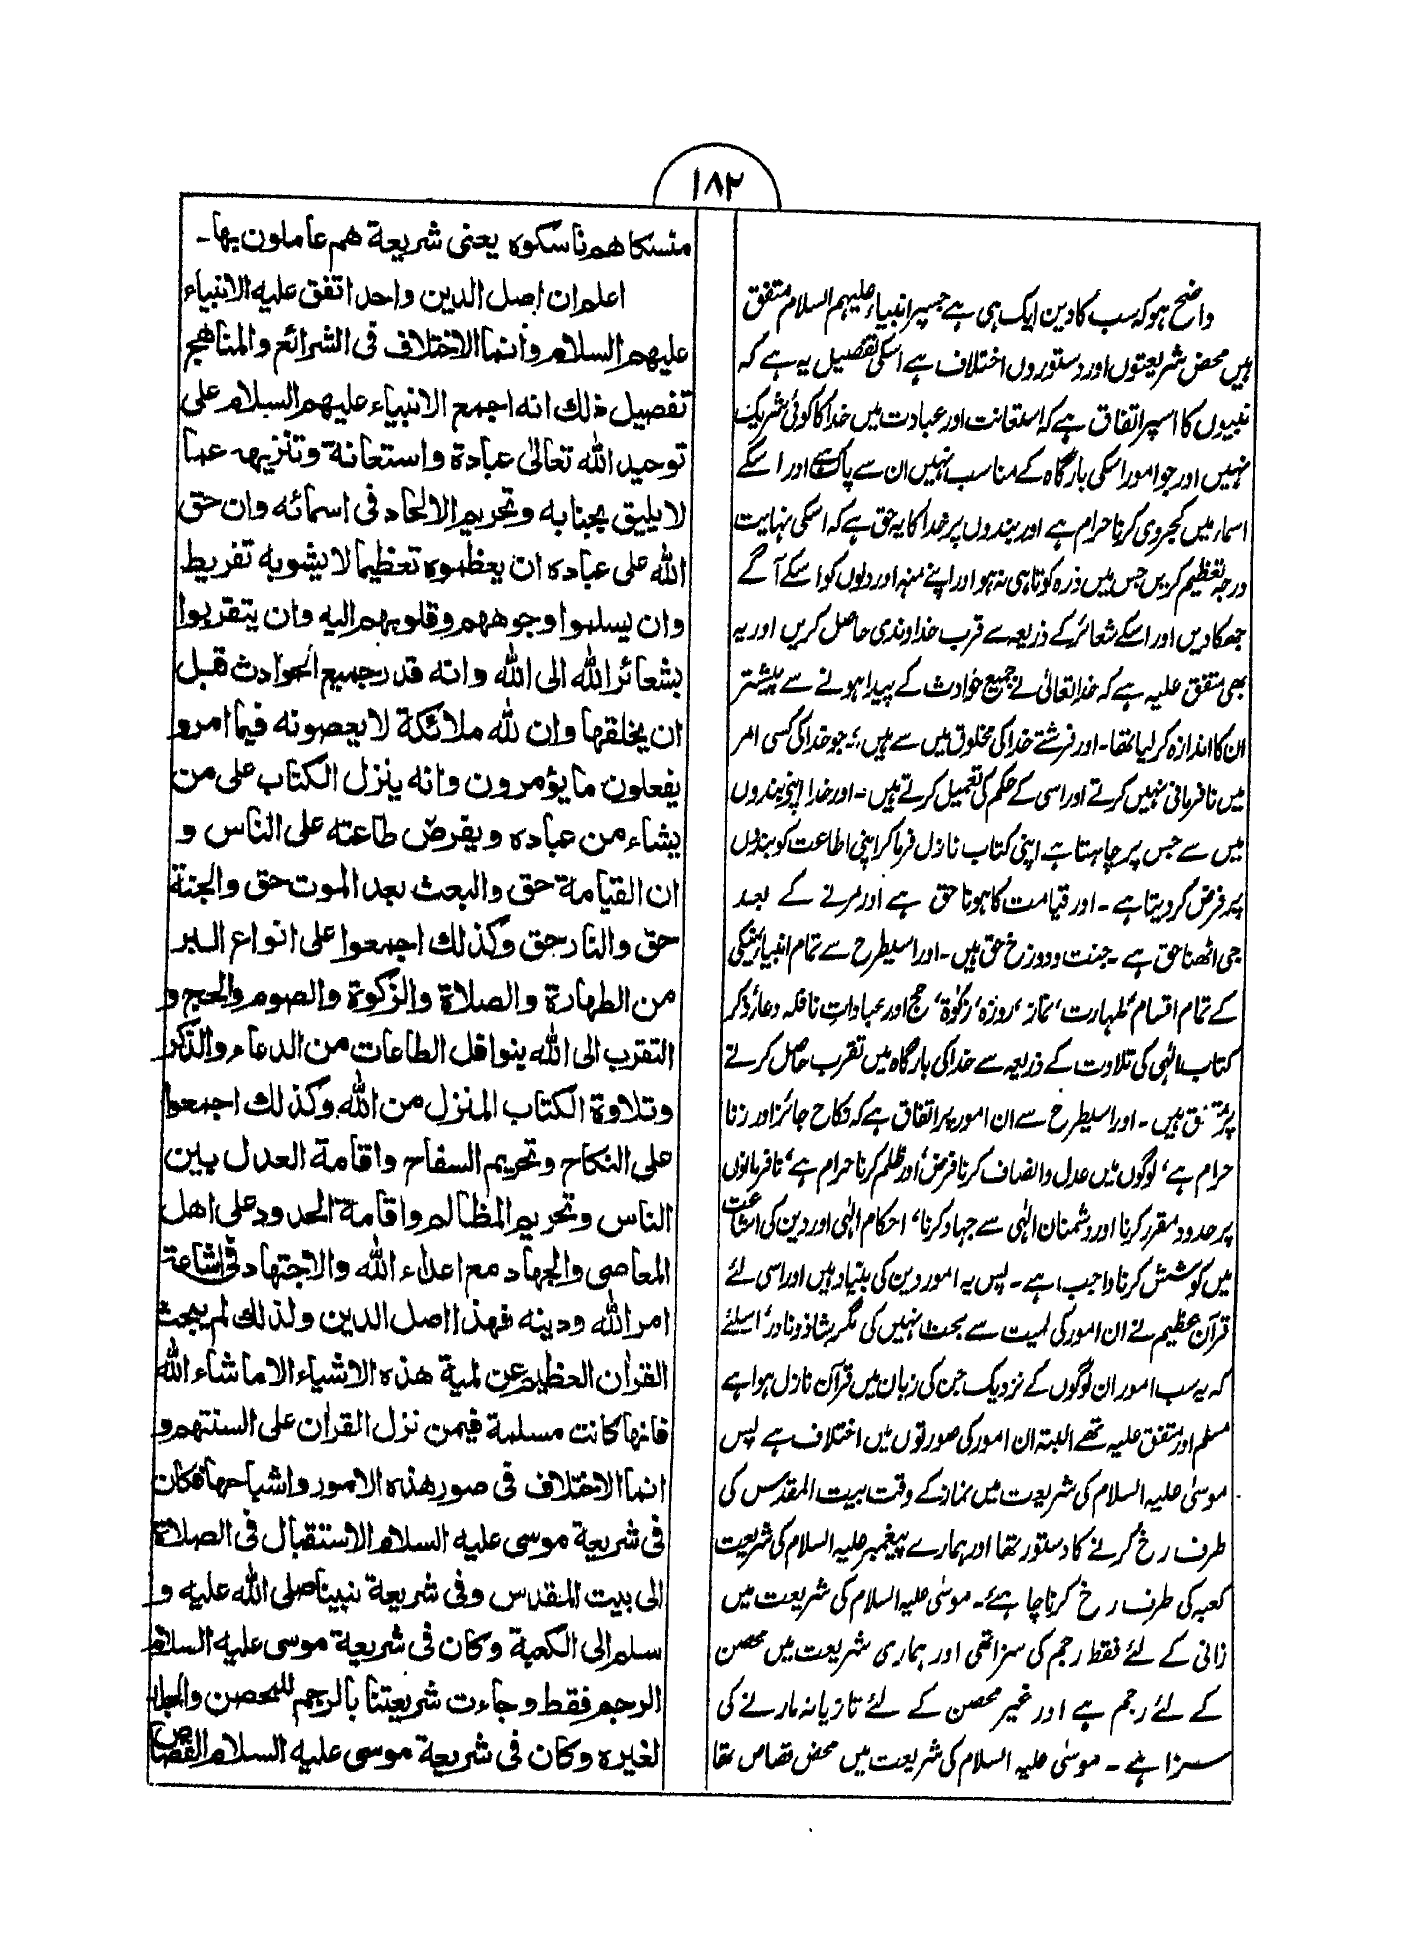 ۱۸۲
واضح ہو کہ سب کا دین ایک ہی ہے جسپر انبیاء علیہم السلام متفق
ہیں محض شریعتوں اور دستوروں اختلاف ہے اسکی تفصیل یہ ہے کہ
نبیوں کا اسپر اتفاق ہے کہ استعانت اور عبادت میں خدا کا کوئی شریک
نہیں اور جو امور اسکی بارگاہ کے مناسب نہیں ان سے پاک ہے اور اسکے
اسماء میں کجروی کرنا حرام ہے اور بندوں پر خدا کا یہ حق ہے کہ اسکی نہایت
درجہ تعظیم کریں جس میں ذرہ کوتاہی نہ ہو اور اپنے منہ اور دلوں کو اسکے آگے
جھکا دیں اور اسکے شعائر کے ذریعہ سے قرب خداوندی حاصل کریں اور یہ
بھی متفق علیہ ہے کہ خدا تعالیٰ نے جمیع حوادث کے پیدا ہونے سے پیشتر
ان کا اندازہ کر لیا تھا۔ اور فرشتے خدا کی مخلوق میں سے ہیں، جو خدا کی کسی امر
میں نافرمانی نہیں کرتے اور اسی کے حکم کی تعمیل کرتے ہیں۔ اور خدا اپنی بندوں
میں سے جس پر چاہتا ہے اپنی کتاب نازل فرما کر اپنی اطاعت کو بندوں
پر فرض کر دیتا ہے۔ اور قیامت کا ہونا حق ہے اور مرنے کے بعد
جی اٹھنا حق ہے۔ جنت و دوزخ حق ہیں۔ اور اسیطرح سے تمام انبیاء نیکی
کے تمام اقسام طہارت، نماز، روزہ، زکوٰۃ، حج اور عبادات نافلہ دعا، ذکر
کتاب الٰہی کی تلاوت کے ذریعہ سے خدا کی بارگاہ میں تقرب حاصل کرنے
پر متفق ہیں۔ اور اسیطرح سے ان امور پر اتفاق ہے کہ نکاح جائز اور زنا
حرام ہے، لوگوں میں عدل و انصاف کرنا فرض، اور ظلم کرنا حرام ہے، نافرمانوں
پر حدود مقرر کرنا اور دشمنان الٰہی سے جہاد کرنا، احکام الٰہی اور دین کی اشاعت
میں کوشش کرنا واجب ہے۔ پس یہ امور دین کی بنیاد ہیں اور اسی لئے
قرآن عظیم نے ان امور کی لمیت سے بحث نہیں کی مگر شاذ و نادر، اسلئے
کہ یہ سب امور ان لوگوں کے نزدیک جن کی زبان میں قرآن نازل ہوا ہے
مسلم اور متفق علیہ تھے البتہ ان امور کی صورتوں میں اختلاف ہے پس
موسیٰ علیہ السلام کی شریعت میں نماز کے وقت بیت المقدس کی
طرف رخ کرنے کا دستور تھا اور ہمارے پیغمبر علیہ السلام کی شریعت
کعبہ کی طرف رخ کرنا چاہئے۔ موسیٰ علیہ السلام کی شریعت میں
زانی کے لئے فقط رجم کی سزا تھی اور ہماری شریعت میں محصن
کے لئے رجم ہے اور غیر محصن کے لئے تازیانہ مارنے کی
سزا ہے۔ موسیٰ علیہ السلام کی شریعت میں محض قصاص تھا
منسکا هم ناسکوه یعنی شریعة هم عاملون بها۔
اعلم ان اصل الدین واحد اتفق علیه الانبیاء
علیهم السلام وانما الاختلاف فی الشرائع والمناهج
تفصیل ذلك انه اجمع الانبیاء علیهم السلام علی
توحید الله تعالی عبادة واستعانة وتنزیهه عما
لا یلیق بجنابه وتحریم الالحاد فی اسمائه وان حق
الله علی عباده ان یعظموه تعظیما لا یشوبه تفریط
وان یسلموا وجوههم وقلوبهم الیه وان یتقربوا
بشعائر الله الی الله وانه قدر جمیع الحوادث قبل
ان یخلقها وان لله ملائکة لا یعصونه فیما امر و
یفعلون ما یؤمرون وانه ینزل الکتاب علی من
یشاء من عباده ویفرض طاعته علی الناس و
ان القیامة حق والبعث بعد الموت حق والجنة
حق والنار حق وکذلك اجمعوا علی انواع البر
من الطهارة والصلاة والزکوة والصوم والحج و
التقرب الی الله بنوافل الطاعات من الدعاء والذکر
وتلاوة الکتاب المنزل من الله وکذلك اجمعوا
علی النکاح وتحریم السفاح واقامة العدل بین
الناس وتحریم المظالم واقامة الحدود علی اهل
المعاصی والجهاد مع اعداء الله والاجتهاد فی اشاعة
امر الله ودینه فهذا اصل الدین ولذلك لم یبحث
القرآن العظیم عن لمیة هذه الاشیاء الا ما شاء الله
فانها کانت مسلمة فیمن نزل القرآن علی السنتهم و
انما الاختلاف فی صور هذه الامور واشباحها فکان
فی شریعة موسی علیه السلام الاستقبال فی الصلاة
الی بیت المقدس وفی شریعة نبینا صلی الله علیه و
سلم الی الکعبة وکان فی شریعة موسی علیه السلام
الرجم فقط وجاءت شریعتنا بالرجم للمحصن والجلد
لغیره وکان فی شریعة موسی علیه السلام القصاص